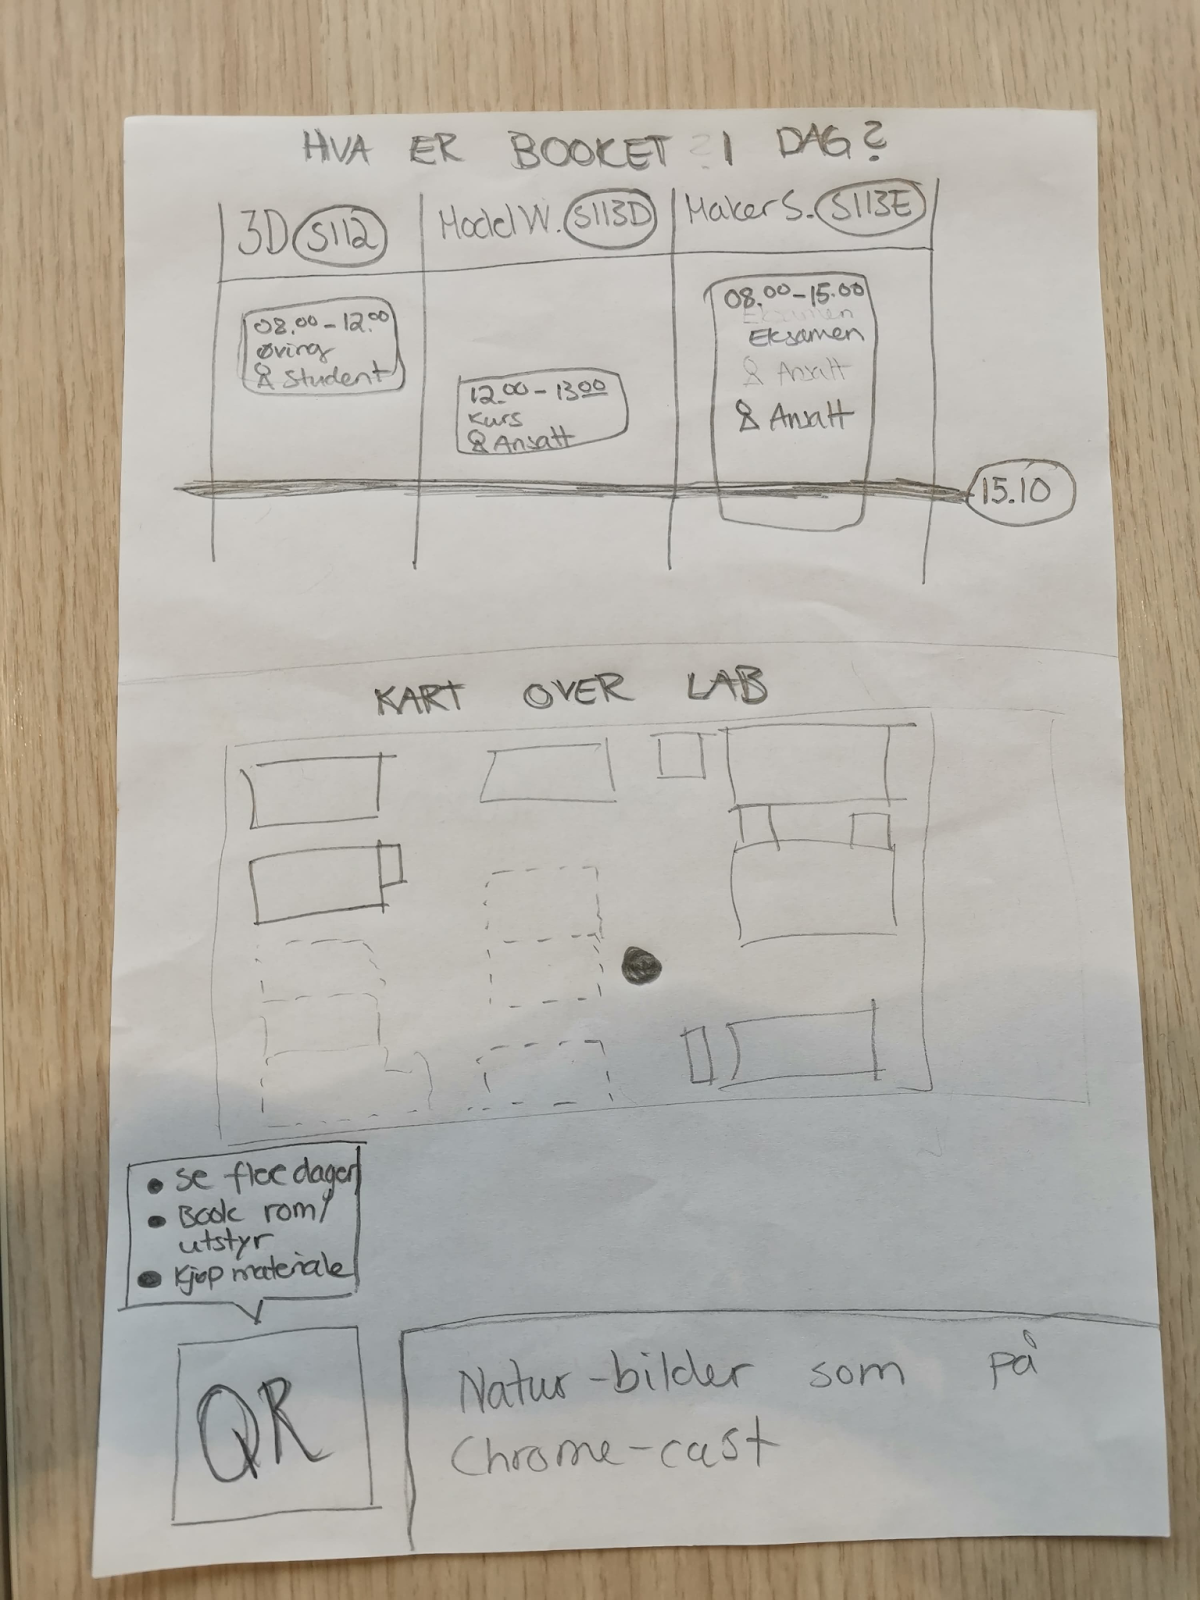 HVA ER BOOKET ? I DAG?
3D S112
Model W. S113D
Maker S. S113E
08.00-12.00
Øving
Student
12.00-13.00
Kurs
Ansatt
08.00-15.00
Eksamen
Eksamen
Ansatt
Ansatt
15.10
KART OVER LAB
• Se flee dager
• Book rom/
utstyr
• Kjøp materiale
QR
Natur-bilder som på
Chrome-cast